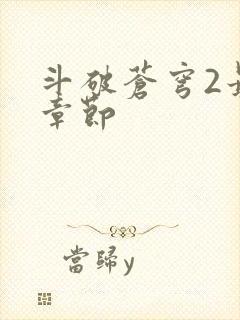 斗破蒼穹2
章節
當歸y